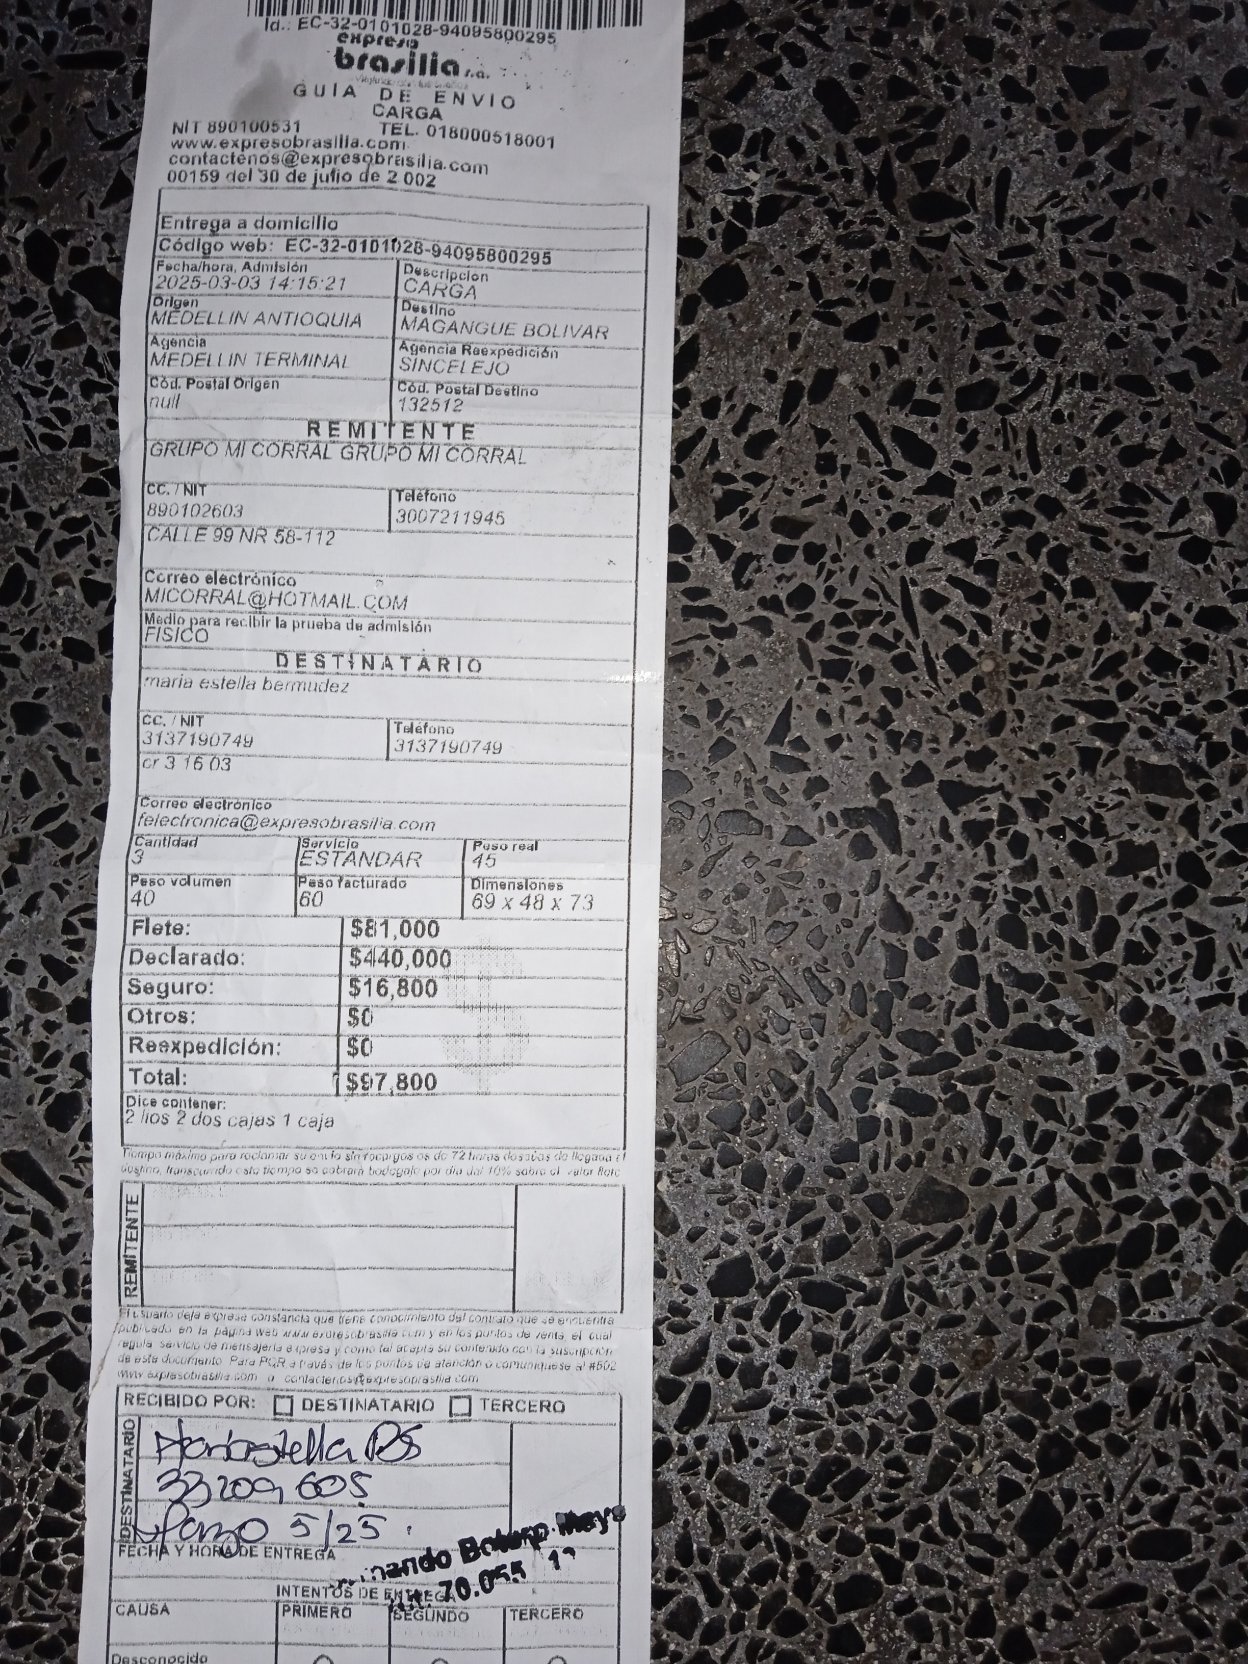 Id.: EC-32-0101028-94095800295
expreso
brasilia s.a.
GUIA DE ENVIO
CARGA
NIT 890100531 TEL. 018000518001
www.expresobrasilia.com
contactenos@expresobrasilia.com
00159 del 30 de julio de 2 002
Entrega a domicilio
Código web: EC-32-0101028-94095800295
Fecha/hora, Admisión Descripcion
2025-03-03 14:15:21 CARGA
Origen Destino
MEDELLIN ANTIOQUIA MAGANGUE BOLIVAR
Agencia Agencia Reexpedición
MEDELLIN TERMINAL SINCELEJO
Cód. Postal Origen Cód. Postal Destino
null 132512
REMITENTE
GRUPO MI CORRAL GRUPO MI CORRAL
CC. / NIT Teléfono
890102603 3007211945
CALLE 99 NR 58-112
Correo electrónico
MICORRAL@HOTMAIL.COM
Medio para recibir la prueba de admisión
FISICO
DESTINATARIO
maria estella bermudez
CC. / NIT Teléfono
3137190749 3137190749
cr 3 16 03
Correo electrónico
felectronica@expresobrasilia.com
Cantidad Servicio Peso real
3 ESTANDAR 45
Peso volumen Peso facturado Dimensiones
40 60 69 x 48 x 73
Flete: $81,000
Declarado: $440,000
Seguro: $16,800
Otros: $0
Reexpedición: $0
Total: $97,800
Dice contener:
2 lios 2 dos cajas 1 caja
Tiempo máximo para reclamar su envío sin recargos es de 72 horas después de llegada al
destino, transcurrido este tiempo se cobrará bodegaje por día del 10% sobre el valor flete
REMITENTE
El usuario deja expresa constancia que tiene conocimiento del contrato que se encuentra
publicado en la página web www.expresobrasilia.com y en los puntos de venta, el cual
regula servicio de mensajería expresa y como tal acepta su contenido con la suscripción
de este documento. Para PQR a través de los puntos de atención o comuníquese al #502
www.expresobrasilia.com o contactenos@expresobrasilia.com
RECIBIDO POR: DESTINATARIO TERCERO
DESTINATARIO
33209605
Marzo 5/25
FECHA Y HORA DE ENTREGA
70.055
INTENTOS DE ENTREGA
CAUSA PRIMERO SEGUNDO TERCERO
Desconocido